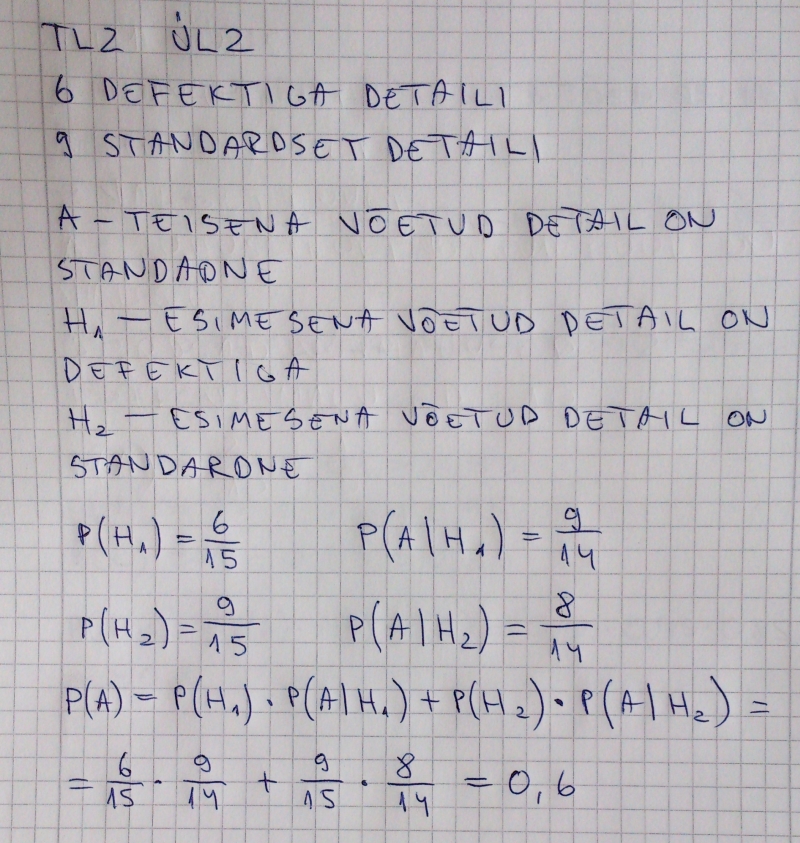 TL2 ÜL2
6 DEFEKTIGA DETAILI
9 STANDARDSET DETAILI
A – TEISENA VÕETUD DETAIL ON
STANDAONE
H₁ – ESIMESENA VÕETUD DETAIL ON
DEFEKTIGA
H₂ – ESIMESENA VÕETUD DETAIL ON
STANDARDNE
P(H₁) = 6/15 P(A|H₁) = 9/14
P(H₂) = 9/15 P(A|H₂) = 8/14
P(A) = P(H₁) · P(A|H₁) + P(H₂) · P(A|H₂) =
= 6/15 · 9/14 + 9/15 · 8/14 = 0,6